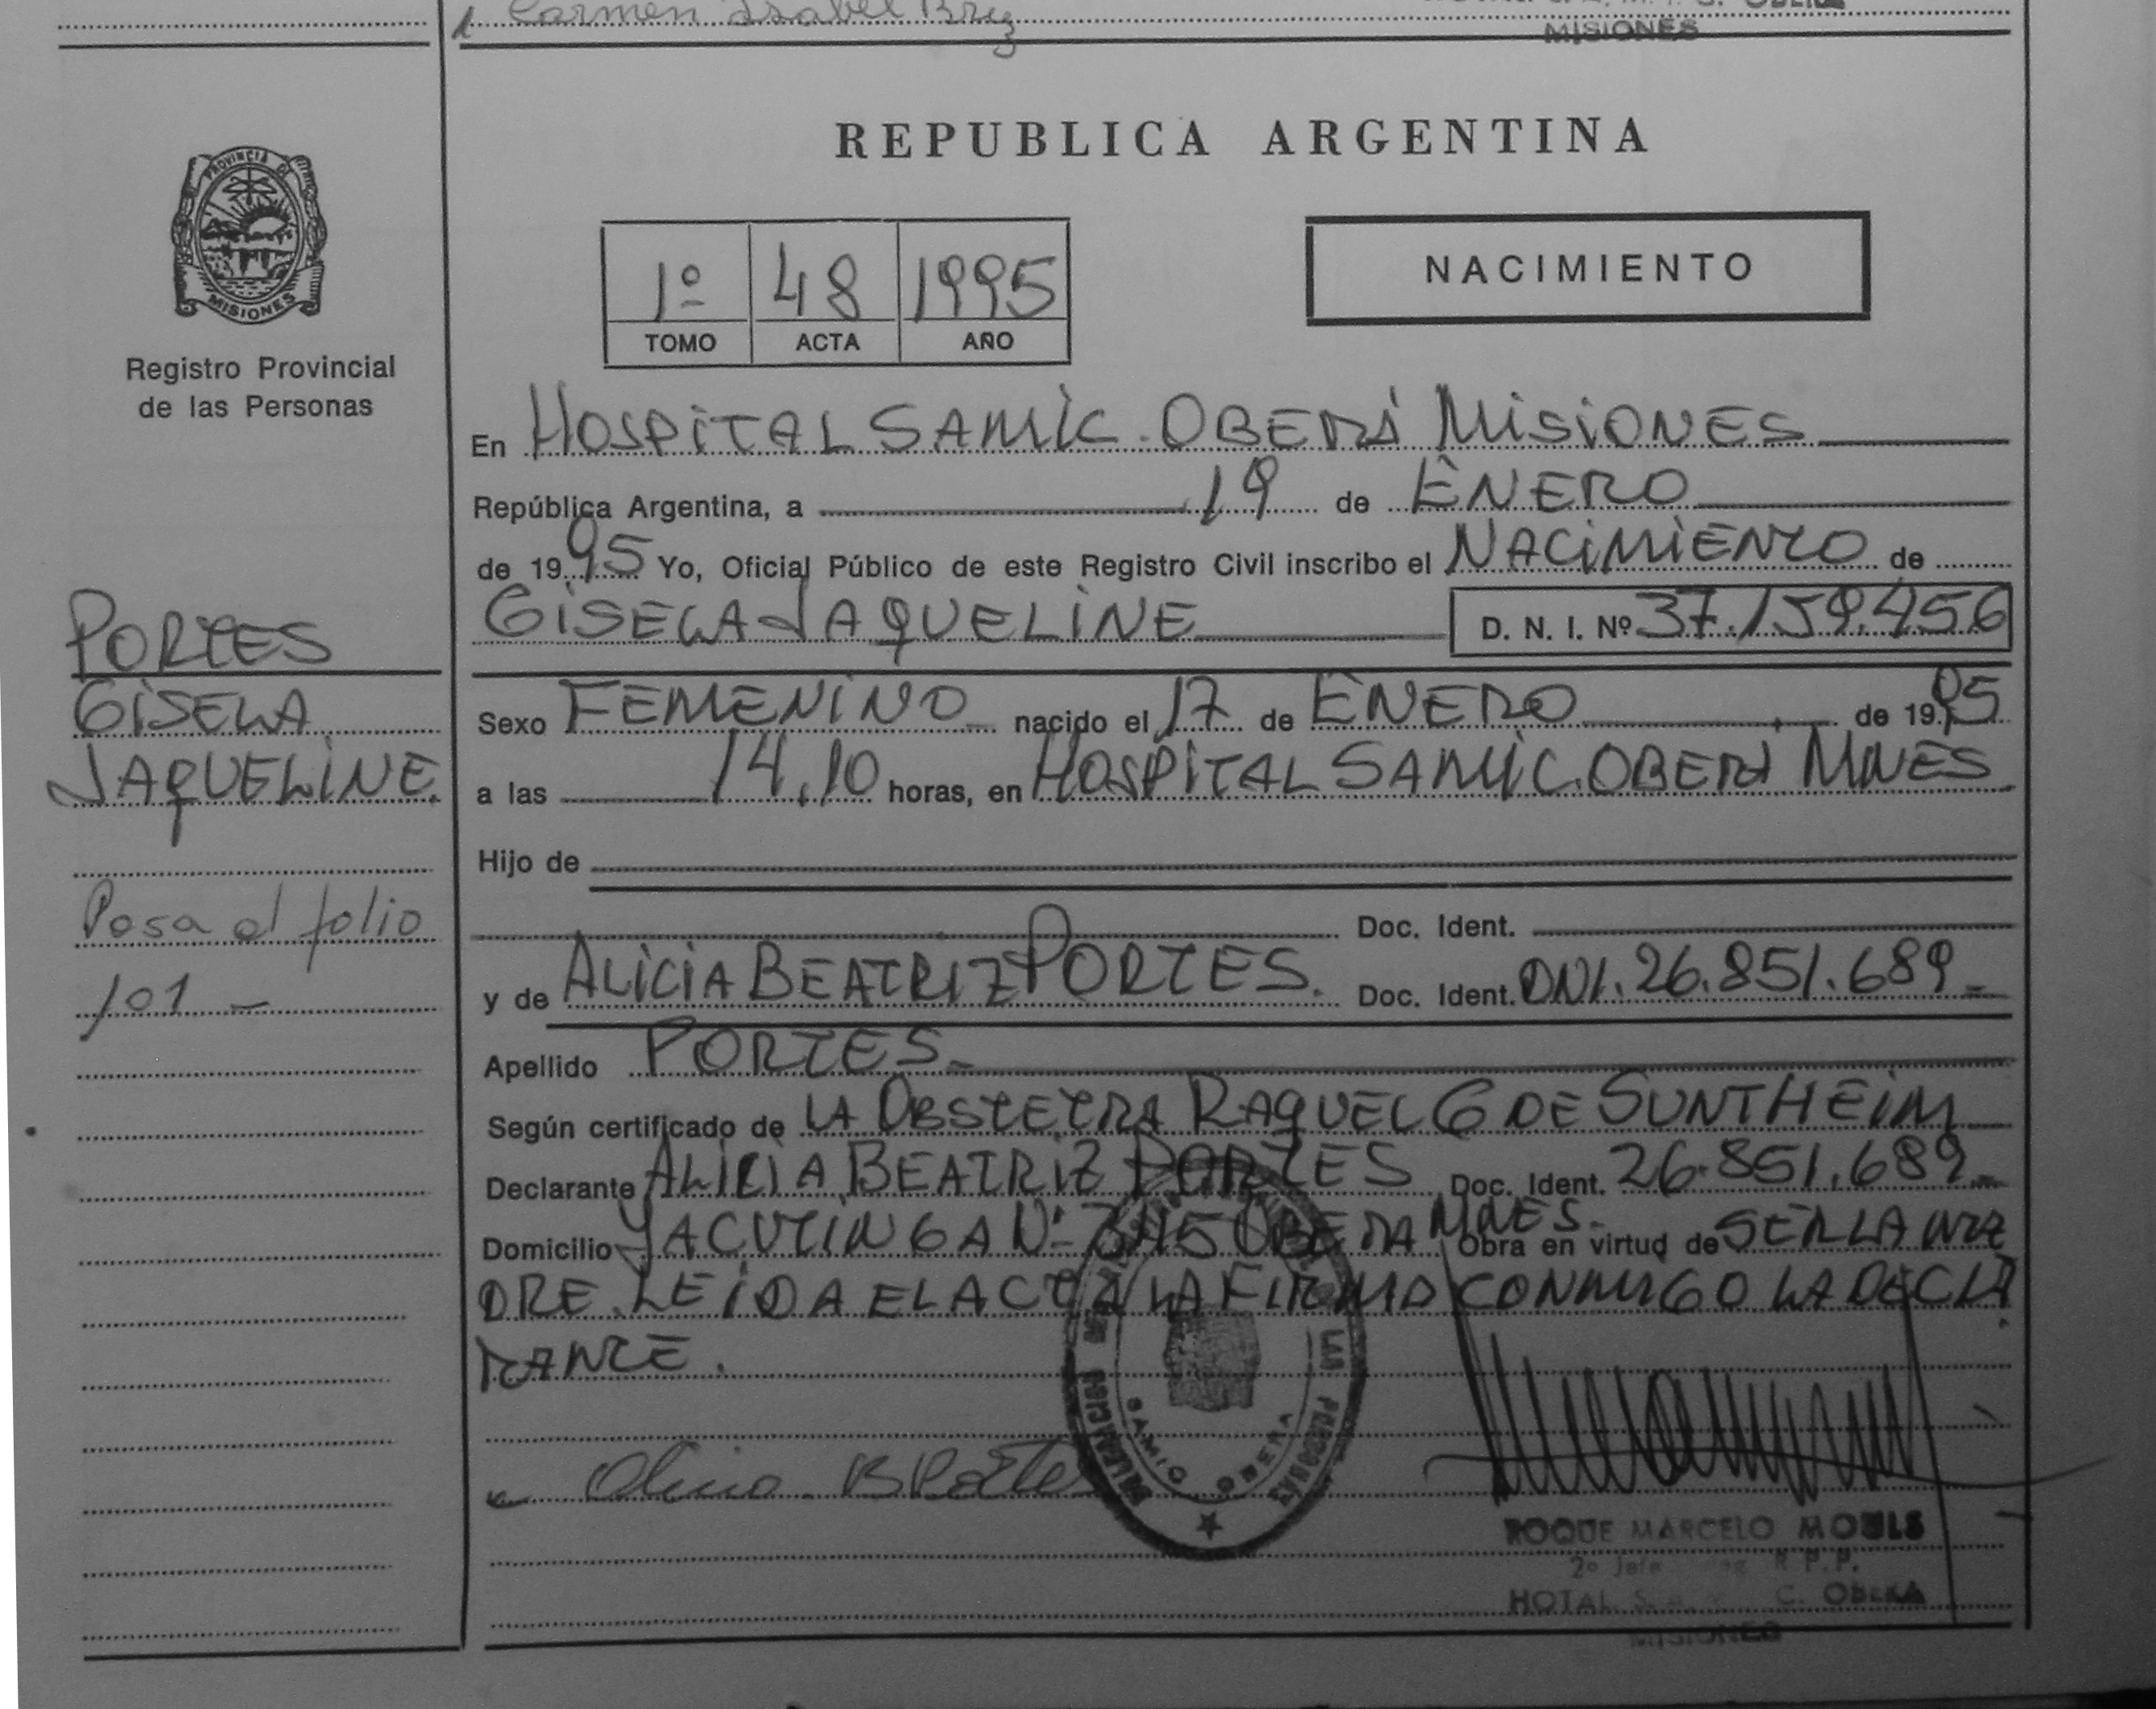 Carmen Isabel Briz
MISIONES
REPUBLICA ARGENTINA
PROVINCIA DE
MISIONES
Registro Provincial
de las Personas
1º 48 1995
TOMO ACTA AÑO
NACIMIENTO
En HOSPITAL SAMIC. OBERÁ MISIONES
República Argentina, a 19 de ENERO
de 1995 Yo, Oficial Público de este Registro Civil inscribo el NACIMIENTO de
GISELA JAQUELINE D. N. I. Nº 37.159.456
PORTES
GISELA
JAQUELINE.
Sexo FEMENINO nacido el 17 de ENERO de 1995
a las 14,10 horas, en HOSPITAL SAMIC. OBERÁ MNES
Hijo de
Doc. Ident.
Pasa al folio
101 -
y de ALICIA BEATRIZ PORTES. Doc. Ident. DNI. 26.851.689-
Apellido PORTES-
Según certificado de LA OBSTETRA RAQUEL G DE SUNTHEIM
Declarante ALICIA BEATRIZ PORTES Doc. Ident. 26.851.689-
Domicilio YACUTINGA Nº 345 OBERA MNES. Obra en virtud de SER LA MA
DRE. LEIDA EL ACTA LA FIRMA CONMIGO LA DECLA
RANTE.
SAMIC OBERA
ROQUE MARCELO MOULS
2º Jefe R.P.P.
HOTAL S. C. OBERA
MISIONES